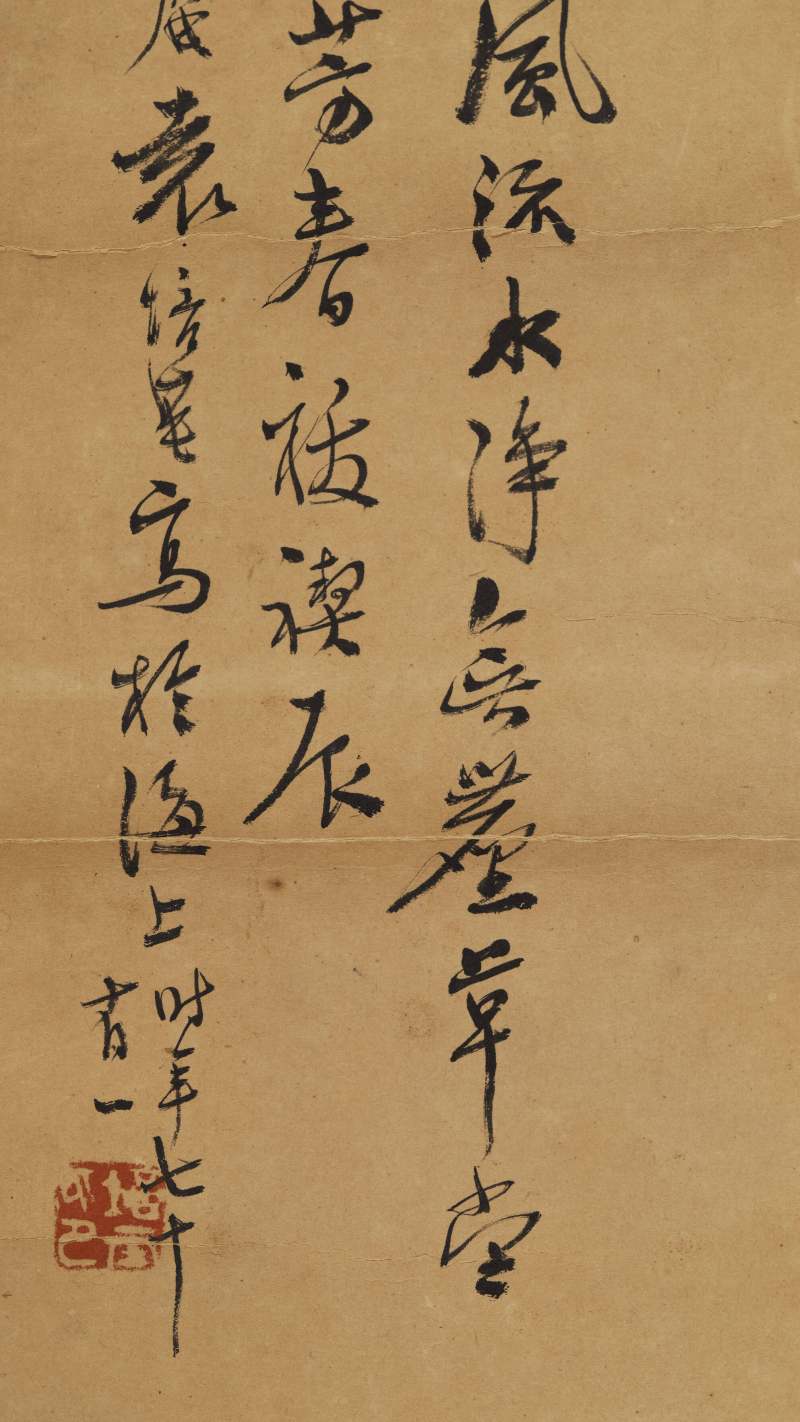 風流水淨無塵草堂
芳春祓禊辰
袁培基寫於滬上
時年七十
有一